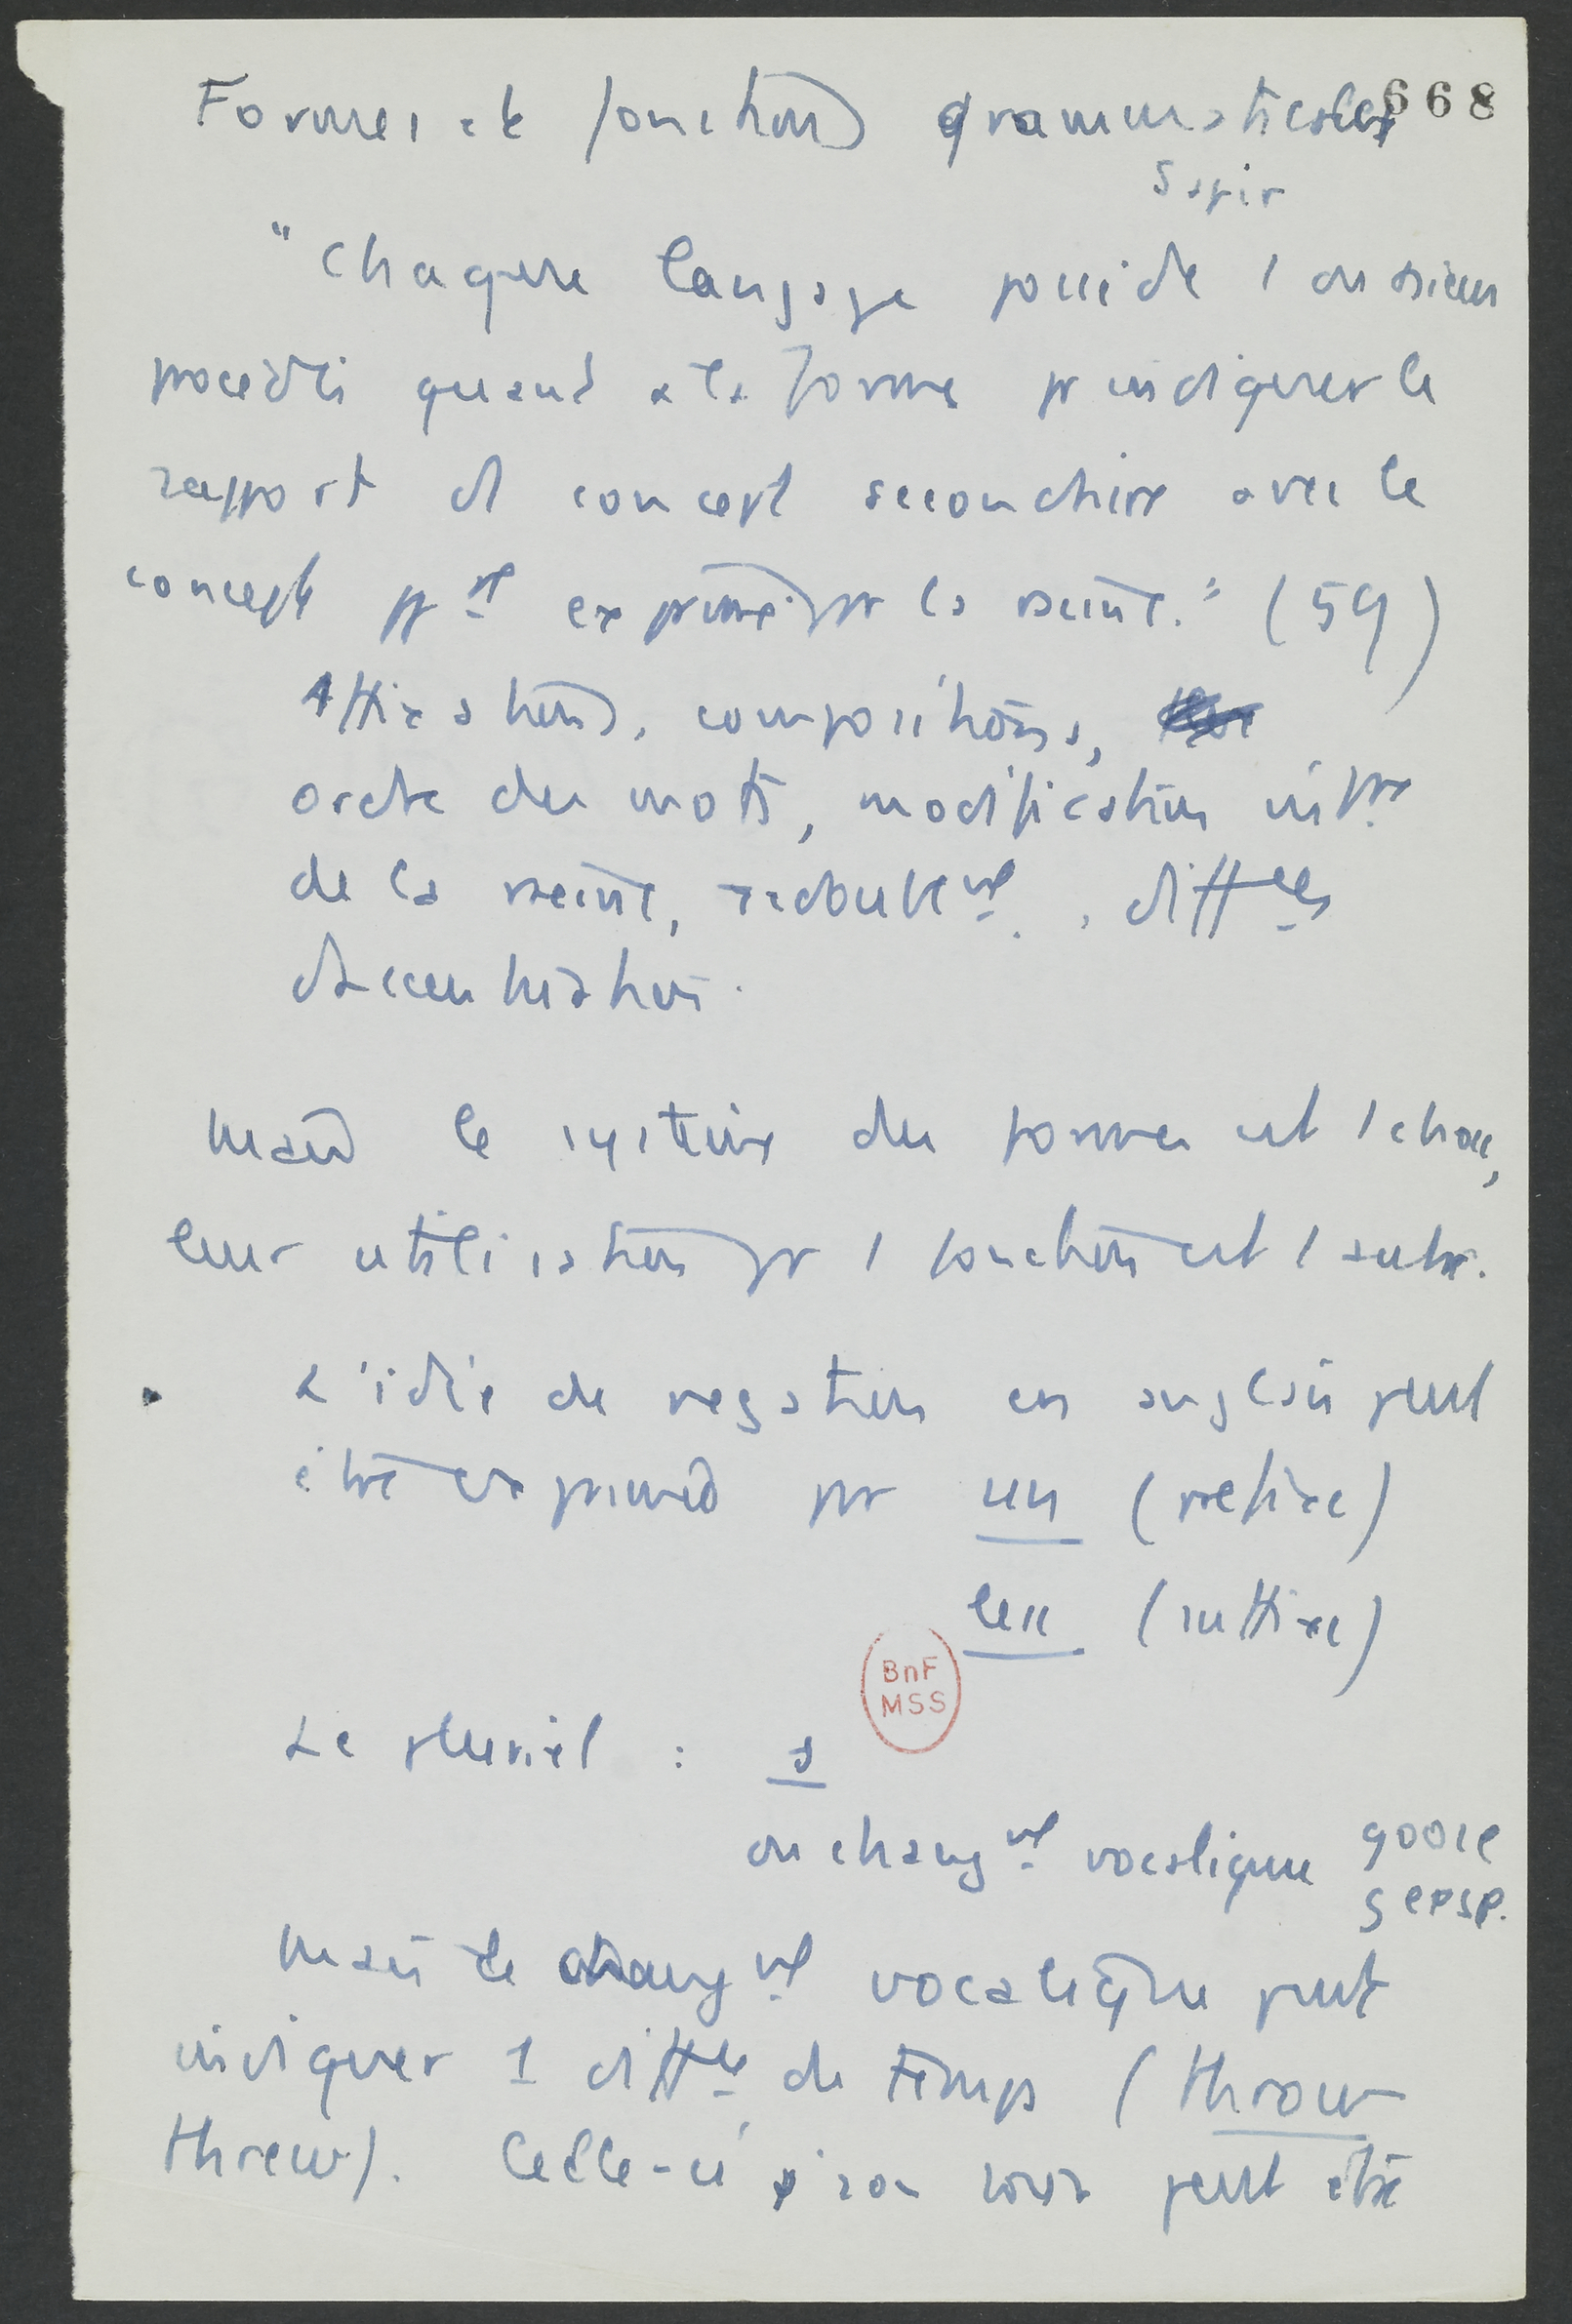 Formes et fonctions grammaticales 668
Sapir
"Chaque langage possède 1 ou plusieurs
procédés quant à la forme pr indiquer le
rapport d concept secondaire avec le
concept ppal exprimé par la racine." (59)
Affixations, compositions,
ordre des mots, modification intre
de la racine, redoublemt, diffces
d'accentuation.
Mais le système des formes est 1 chose,
leur utilisation pr 1 fonction est 1 autre.
L'idée de négation en anglais peut
être exprimée par un (préfixe)
less (suffixe)
BnF
MSS
Le pluriel : s
ou changmt vocalique goose
geese.
Mais le changmt vocalique peut
indiquer 1 diffce de temps (throw
threw). Celle-ci à son tour peut être